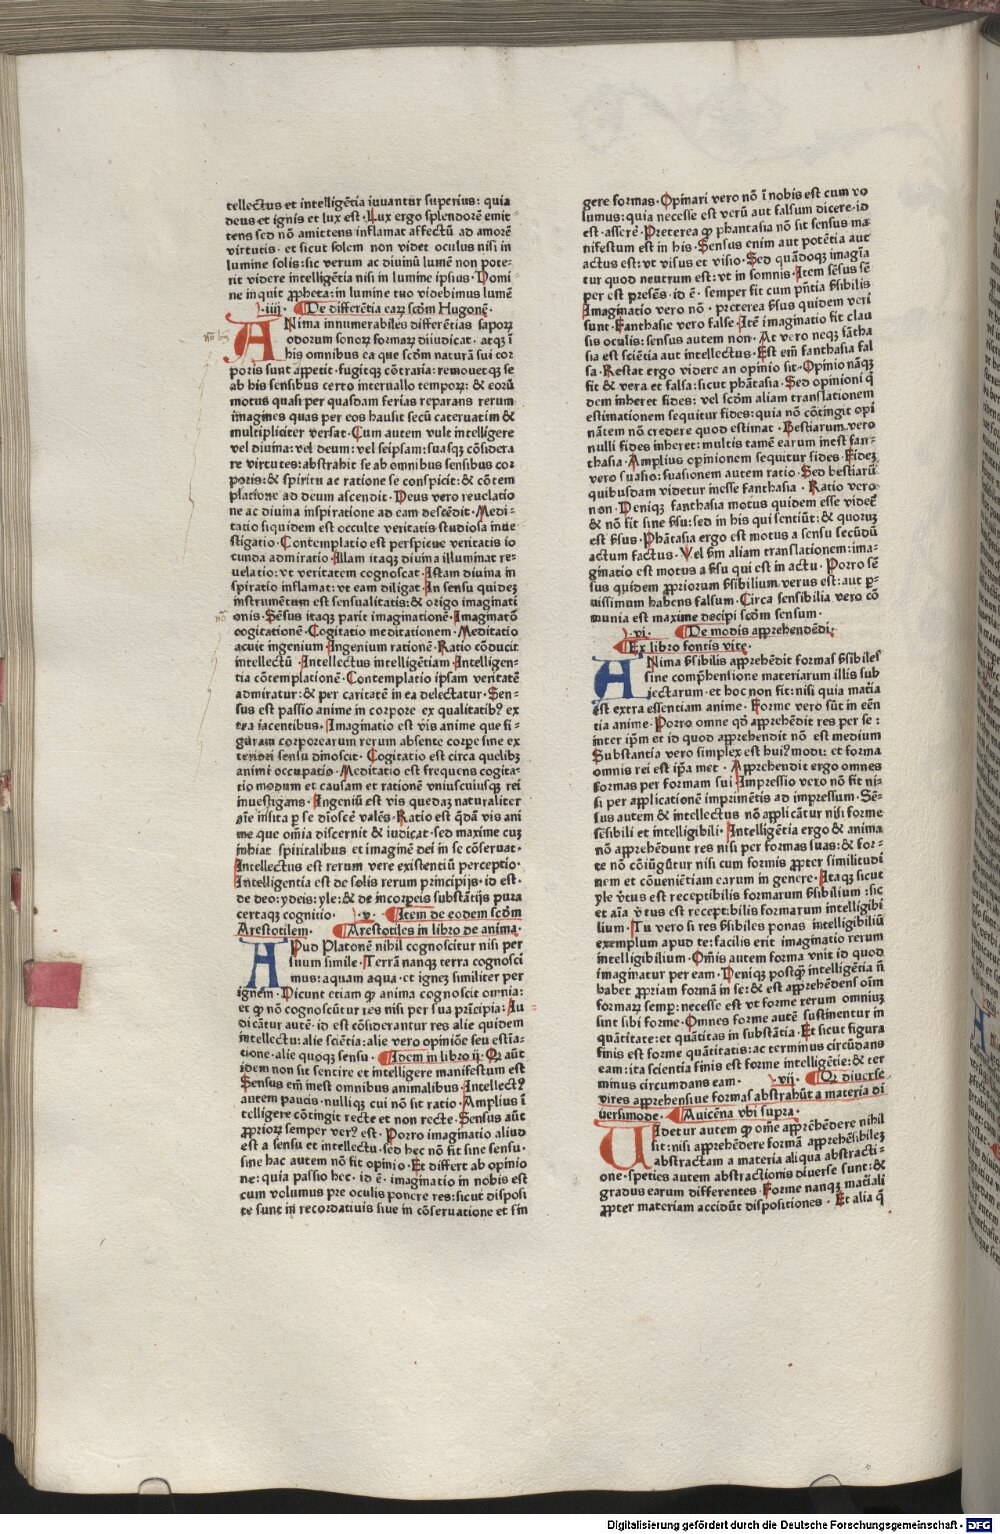 tellectus et intelligētia iuuantur superius: quia
deus et ignis et lux est · Lux ergo splendorē emit⸗
tens sed nō amittens inflamat affectū ad amorē
virtutis · et sicut solem non videt oculus nisi in
lumine solis: sic verum ac diuinū lumē non pote⸗
rit videre intelligētia nisi in lumine ipsius · Domi⸗
ne inquit ꝓpheta: in lumine tuo videbimus lumē
·iiij· De differētia eaꝝ scōm Hugonē·
ANima innumerabiles differētias sapoꝝ
odorum sonoꝝ formaꝝ diiudicat · atqꝫ ī
his omnibus ea que scōm naturā sui cor
poris sunt appetit · fugitqꝫ cōtraria: remouetqꝫ se
ab his sensibus certo interuallo tempoꝝ: & eorū
motus quasi per quasdam ferias reparans rerum
imagines quas per eos hausit secū cateruatim &
multipliciter versat · Cum autem vult intelligere
vel diuina: vel deum: vel seipsam: suasqꝫ cōsidera
re virtutes: abstrahit se ab omnibus sensibus cor
poris: & spiritu ac ratione se conspicit: & cōtem
platione ad deum ascendit · Deus vero reuelatio
ne ac diuina inspiratione ad eam descēdit · Medi⸗
tatio siquidem est occulte veritatis studiosa inue
stigatio · Contemplatio est perspicue veritatis io
cunda admiratio · Illam itaqꝫ diuina illuminat re⸗
uelatio: vt veritatem cognoscat · Istam diuina in
spiratio inflamat: vt eam diligat · In sensu quideꝫ
instrumētum est sensualitatis: & origo imaginati
onis · Sēsus itaqꝫ parit imaginationē · Imaginatō
cogitationē · Cogitatio meditationem · Meditatio
acuit ingenium · Ingenium rationē · Ratio cōducit
intellectū · Intellectus intelligētiam · Intelligen⸗
tia cōtemplationē · Contemplatio ipsam veritatē
admiratur: & per caritatē in ea delectatur · Sen⸗
sus est passio anime in corpore ex qualitatibꝰ ex
tra iacentibus · Imaginatio est vis anime que fi⸗
guram corporearum rerum absente corpe sine ex
teriori sensu dinoscit · Cogitatio est circa quelibꝫ
animi occupatio · Meditatio est frequens cogita⸗
tio modum et causam et rationē vniuscuiusqꝫ rei
inuestigans · Ingeniū est vis quedaꝫ naturaliter
aīe insita p se dīoscē valēs · Ratio est q̄dā vis ani
me que omīa discernit & iudicat · sed maxime cuꝫ
inhiat spiritalibus et imaginē dei in se cōseruat ·
Intellectus est rerum vere existentiū perceptio ·
Intelligentia est de solis rerum principijs · id est ·
de deo: ydeis: yle: & de incorpeis substātijs pura
certaqꝫ cognitio · ·v· Item de eodem scōm
Arestotilem · Arestotiles in libro de anima ·
APud Platonē nihil cognoscitur nisi per
suum simile · Terrā nanqꝫ terra cognosci
mus: aquam aqua · et igneꝫ similiter per
ignem · Dicunt etiam ꝙ anima cognoscit omnia:
et ꝙ nō cognoscūtur res nisi per sua prīcipia: Iu
dicātur autē · id est cōsiderantur res alie quidem
intellectu: alie sciētia: alie vero opiniōe seu estīa⸗
tione · alie quoqꝫ sensu · Idem in libro ij · Qꝫ aūt
idem non sit sentire et intelligere manifestum est
Sensus em̄ inest omnibus animalibus · Intellectꝰ
autem paucis · nulliqꝫ cui nō sit ratio · Amplius ī
telligere cōtingit recte et non recte · Sensus aūt
ꝓprioꝝ semper verꝰ est · Porro imaginatio aliud
est a sensu et intellectu · sed hec nō fit sine sensu ·
sine hac autem nō fit opinio · Et differt ab opinio
ne: quia passio hec · id ē · imaginatio in nobis est
cum volumus pre oculis ponere res: sicut disposi
te sunt in recordatiuis siue in cōseruatione et sin
gere formas · Opinari vero nō ī nobis est cum vo
lumus: quia necesse est verū aut falsum dicere · id
est · asserē · Preterea ꝙ phantasia nō sit sensus ma
nifestum est in his · Sensus enim aut potētia aut
actus est: vt visus et visio · Sed quādoqꝫ imagīa
tur quod neutrum est: vt in somnis · Item sēsus sē
per est presēs · id ē · semper fit cum pn̄tia ſ̄sibilis
Imaginatio vero nō · preterea ſ̄sus quidem veri
sunt · Fanthasie vero false · Itē imaginatio fit clau
sis oculis: sensus autem non · At vero neqꝫ fātha
sia est sciētia aut intellectus · Est em̄ fanthasia fal
sa · Restat ergo videre an opinio sit · Opinio nāqꝫ
fit & vera et falsa: sicut phātasia · Sed opinioni q̇
dem inheret fides: vel scōm aliam translationem
estimationem sequitur fides: quia nō cōtingit opi
nātem nō credere quod estimat · Bestiarum vero
nulli fides inheret: multis tamē earum inest fan⸗
thasia · Amplius opinionem sequitur fides · Fideꝫ
vero suasio: suasionem autem ratio · Sed bestiarū
quibusdam videtur inesse fanthasia · Ratio vero
non · Deniqꝫ fanthasia motus quidem esse videt̄
& nō fit sine ſ̄su: sed in his qui sentiūt: & quoruꝫ
est ſ̄sus · Phātasia ergo est motus a sensu secūdū
actum factus · Vel ſm̄ aliam translationem: ima⸗
ginatio est motus a ſ̄su qui est in actu · Porro sē
sus quidem ꝓpriorum ſ̄sibilium verus est: aut ꝑ⸗
uissimum habens falsum · Circa sensibilia vero cō
munia est maxime decipi scōm sensum ·
·vi· De modis apprehendēdi ·
Ex libro fontis vite ·
ANima ſ̄sibilis apprehēdit formas ſ̄sibiles
sine comp̄hensione materiarum illis sub
iectarum · et hoc non fit: nisi quia mat̄ia
est extra essentiam anime · Forme vero sūt in eēn
tia anime · Porro omne qd̄ apprehēdit res per se:
inter ip̄m et id quod apprehendit nō est medium
Substantia vero simplex est huiꝰmodi: et forma
omnis rei est ip̄a met · Apprehendit ergo omnes
formas per formam sui · Impressio vero nō fit ni⸗
si per applicationē imprimētis ad impressum · Sē⸗
sus autem & intellectus nō applicātur nisi forme
sēsibili et intelligibili · Intelligētia ergo & anima
nō apprehēdunt res nisi per formas suas: & for⸗
te nō cōiūgūtur nisi cum formis ꝓpter similitudi
nem et cōueniētiam earum in genere · Itaqꝫ sicut
yle v̄tus est receptibilis formarum ſ̄sibilium: sic
et aīa v̄tus est receptibilis formarum intelligibi
lium · Tu vero si res ſ̄sibiles ponas intelligibiliū
exemplum apud te: facilis erit imaginatio rerum
intelligibilium · Om̄is autem forma vnit id quod
imaginatur per eam · Deniqꝫ postqꝫ intelligētia n̄
habet ꝓpriam formā in se: & est apprehēdens oīm
formaꝝ semp: necesse est vt forme rerum omniuꝫ
sint sibi forme · Omnes forme autē sustinentur in
quātitate: et quātitas in substātia · Et sicut figura
finis est forme quātitatis: ac terminus circūdans
eam: ita scientia finis est forme intelligētie: & ter
minus circumdans eam · ·vij· Qꝫ diuerse
vires apprehensiue formas abstrahūt a materia di
uersimode · Auicēna vbi supra ·
UIdetur autem ꝙ om̄e apprehēdere nihil
sit: nisi apprehēdere formā apprehēsibileꝫ
abstractam a materia aliqua abstracti⸗
one · species autem abstractionis diuerse sunt: &
gradus earum differentes · Forme nanqꝫ mat̄iali
ꝓpter materiam accidūt dispositiones · Et alia q̄
Digitalisierung gefördert durch die Deutsche Forschungsgemeinschaft - DFG